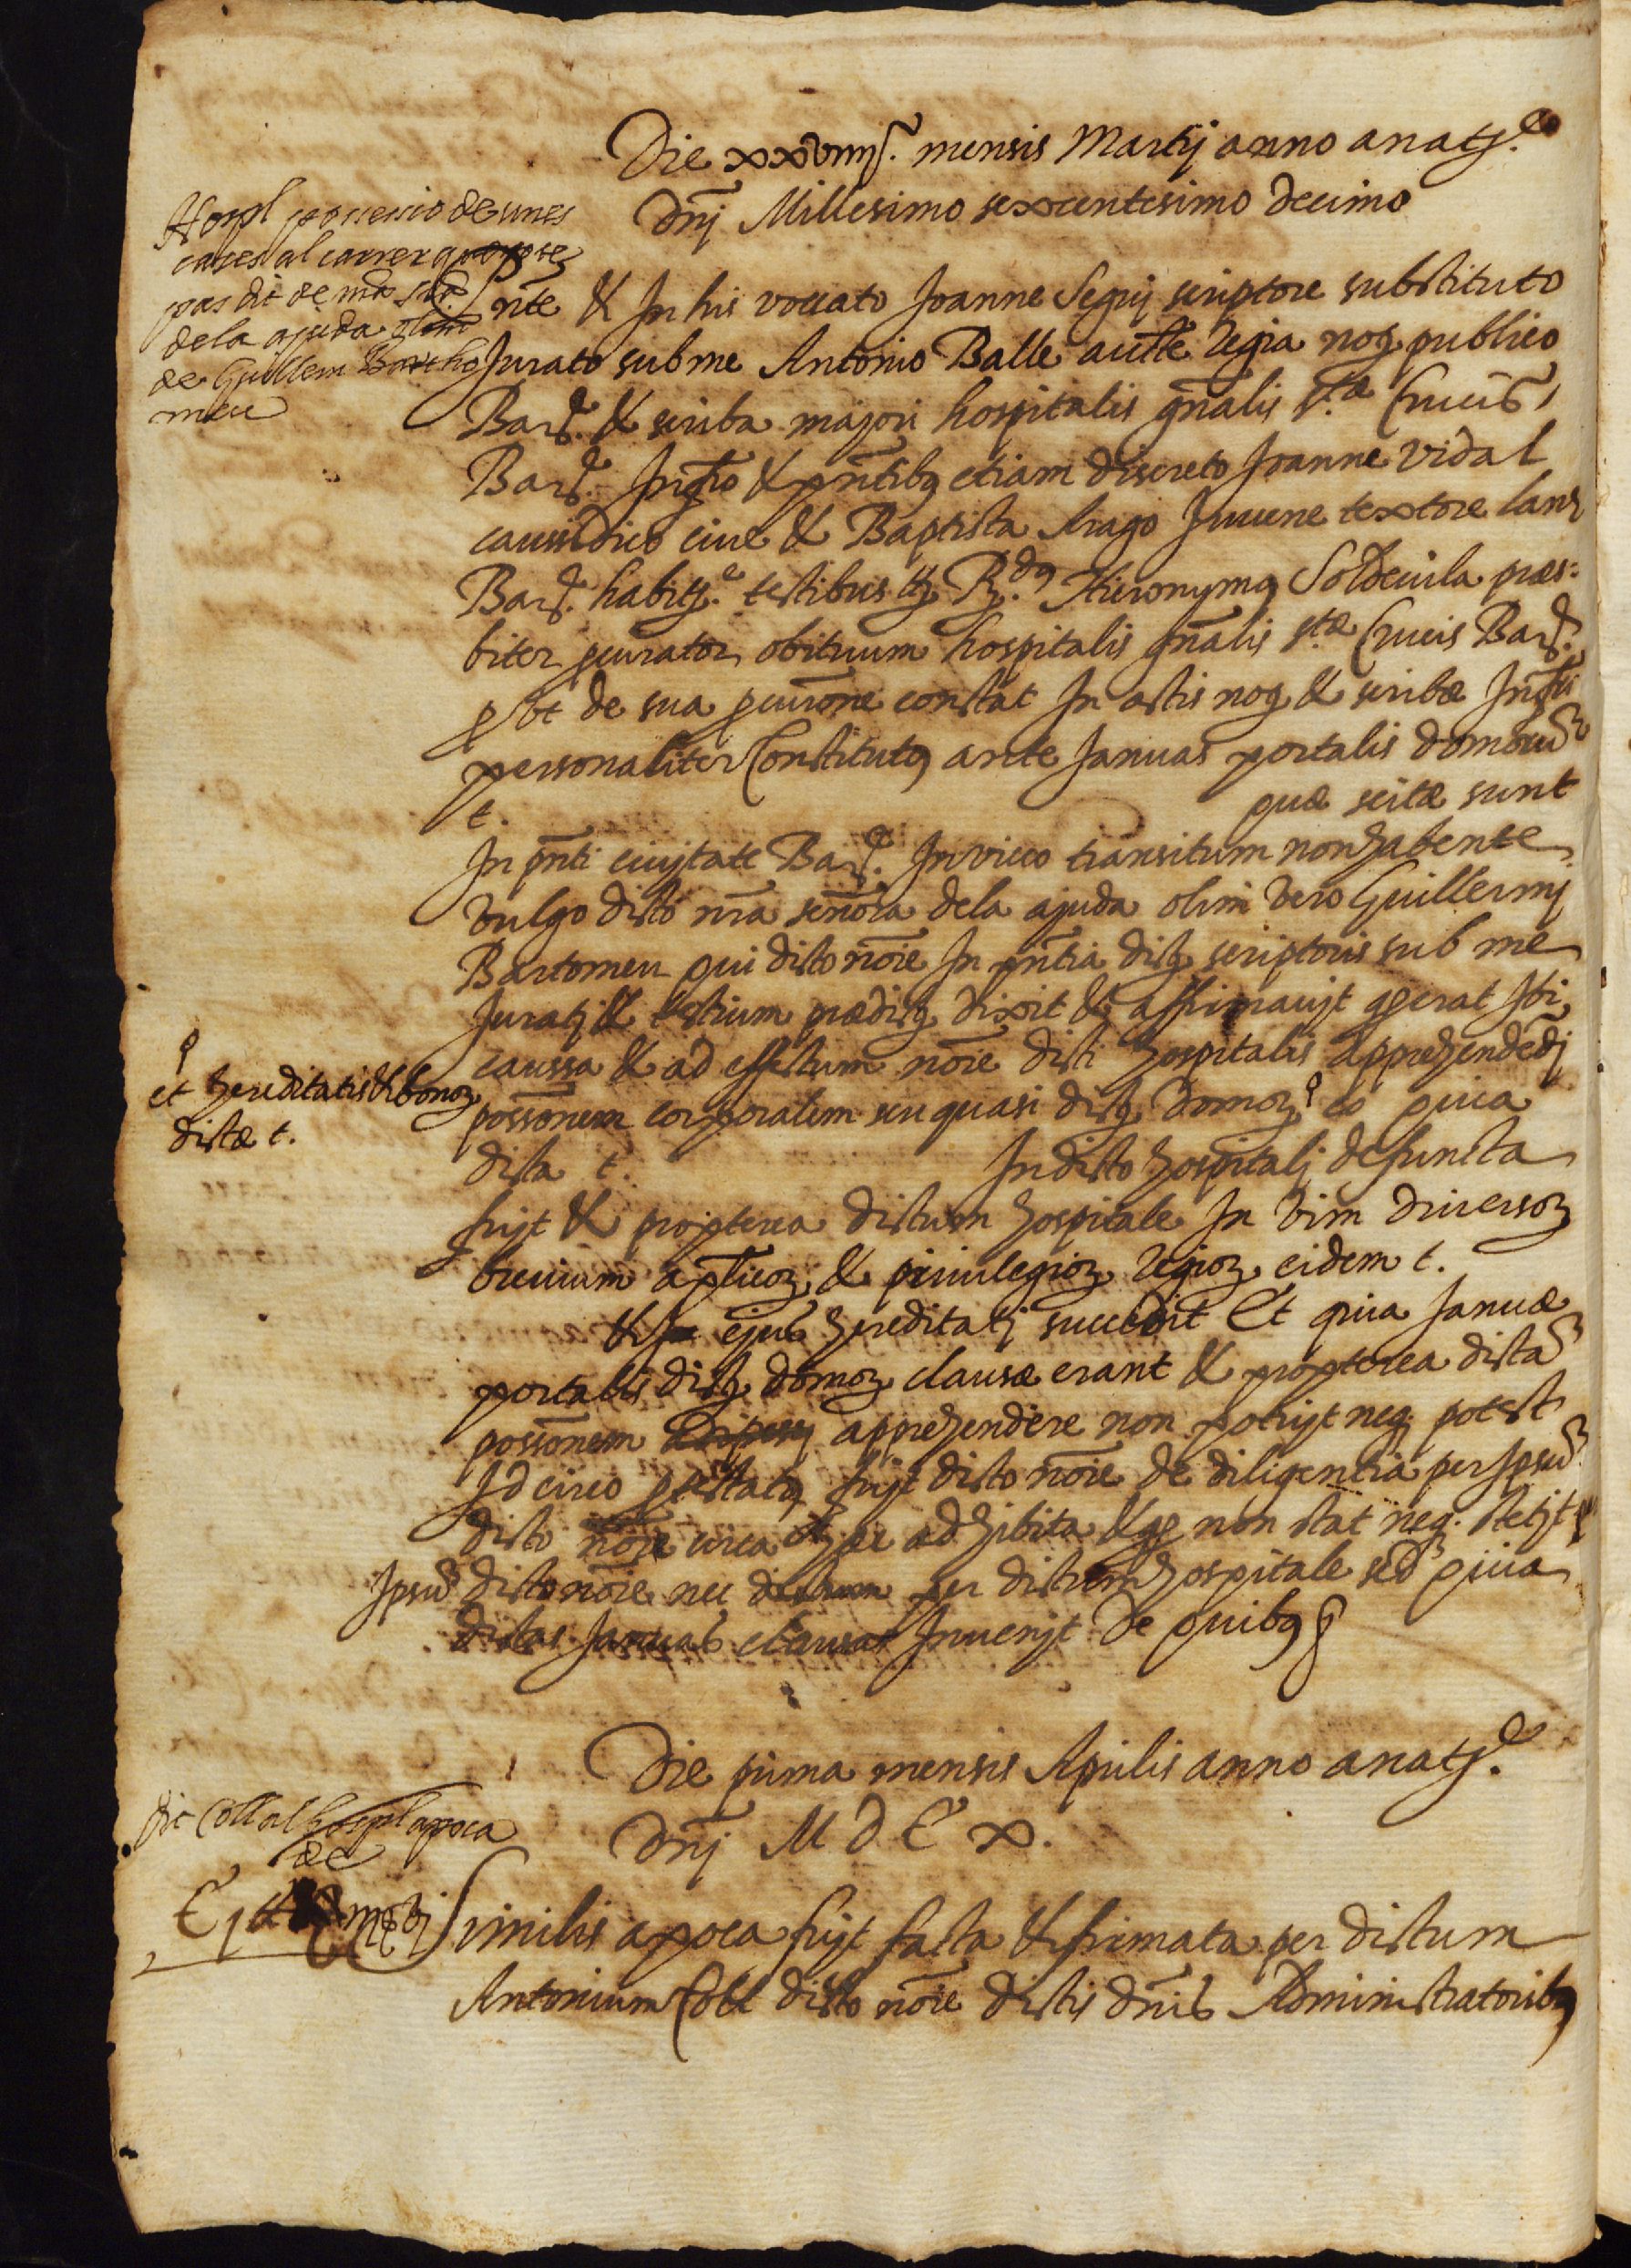 Die xxviiij. mensis Martij anno a nat.e
Dnj Millesimo sexcentesimo decimo
Hospl possessio de unes
cases al carrer que no te
pas dit de nra Sra
dela ajuda olim
de Guillem Bartho
meu
nte & In his vocato Joanne Seguj scriptore substituto
Jurato sub me Antonio Batlle aucte Regia not publico
Bar. & scriba majori hospitalis gnalis sta Crucis
Bar. Infro & pntibq etiam discreto Joanne Vidal
caussidico cive & Baptista Arago Juvene textore lanæ
Bar. habit.e testibus Rdq Hieronymq Soldevila præs-
biter pcurator obituum hospitalis gnalis stæ Crucis Bar.
pst de sua pcurõne constat In actis not & scribæ Infri
personaliter Constitutq ante Januas portalis domorũ
t. quæ scitæ sunt
In pnti civjtate Bar. In vicco transitum non habente
vulgo dicto nra señora dela ajuda olim vero Guillermj
Bartomeu qui dicto noie In pntia dict scriptoris sub me
Juratj & testium prædict dixit & affirmavjt q erat ibi
caussa & ad effectum noie dicti hospitalis apprehendẽdj
possõnem corporalem seu quasi dict domoꝝ eo quia
et hereditatis & bonoꝝ
dictæ t.
dicta t. In dicto hospitalj defuncta
fujt & propterea dictum hospitale In vim diversoꝝ
brevium aplicoꝝ & privilegioꝝ Regioꝝ eidem t.
& ejus hereditatj succedit Et quia Januæ
portalis dict domoꝝ clausæ erant & propterea dictã
possõnem apprehendere non potujt neq potest
Idcirco ptestatq fujt dicto noie de diligentia per Ipsũ
dicto noie circa hæc adhibita & q non stat neq. stetjt p
Ipsũ dicto noie nec per dictum hospitale sed quia
dictas Januas clausas Invenjt De quibq
Die prima mensis Aprilis anno a nat.e
Dnj M D C x.
dit Coll al hospl apoca
de
Similis apoca fujt facta & firmata per dictum
Antonium Coll dicto noie dictis dnis Administratoribq